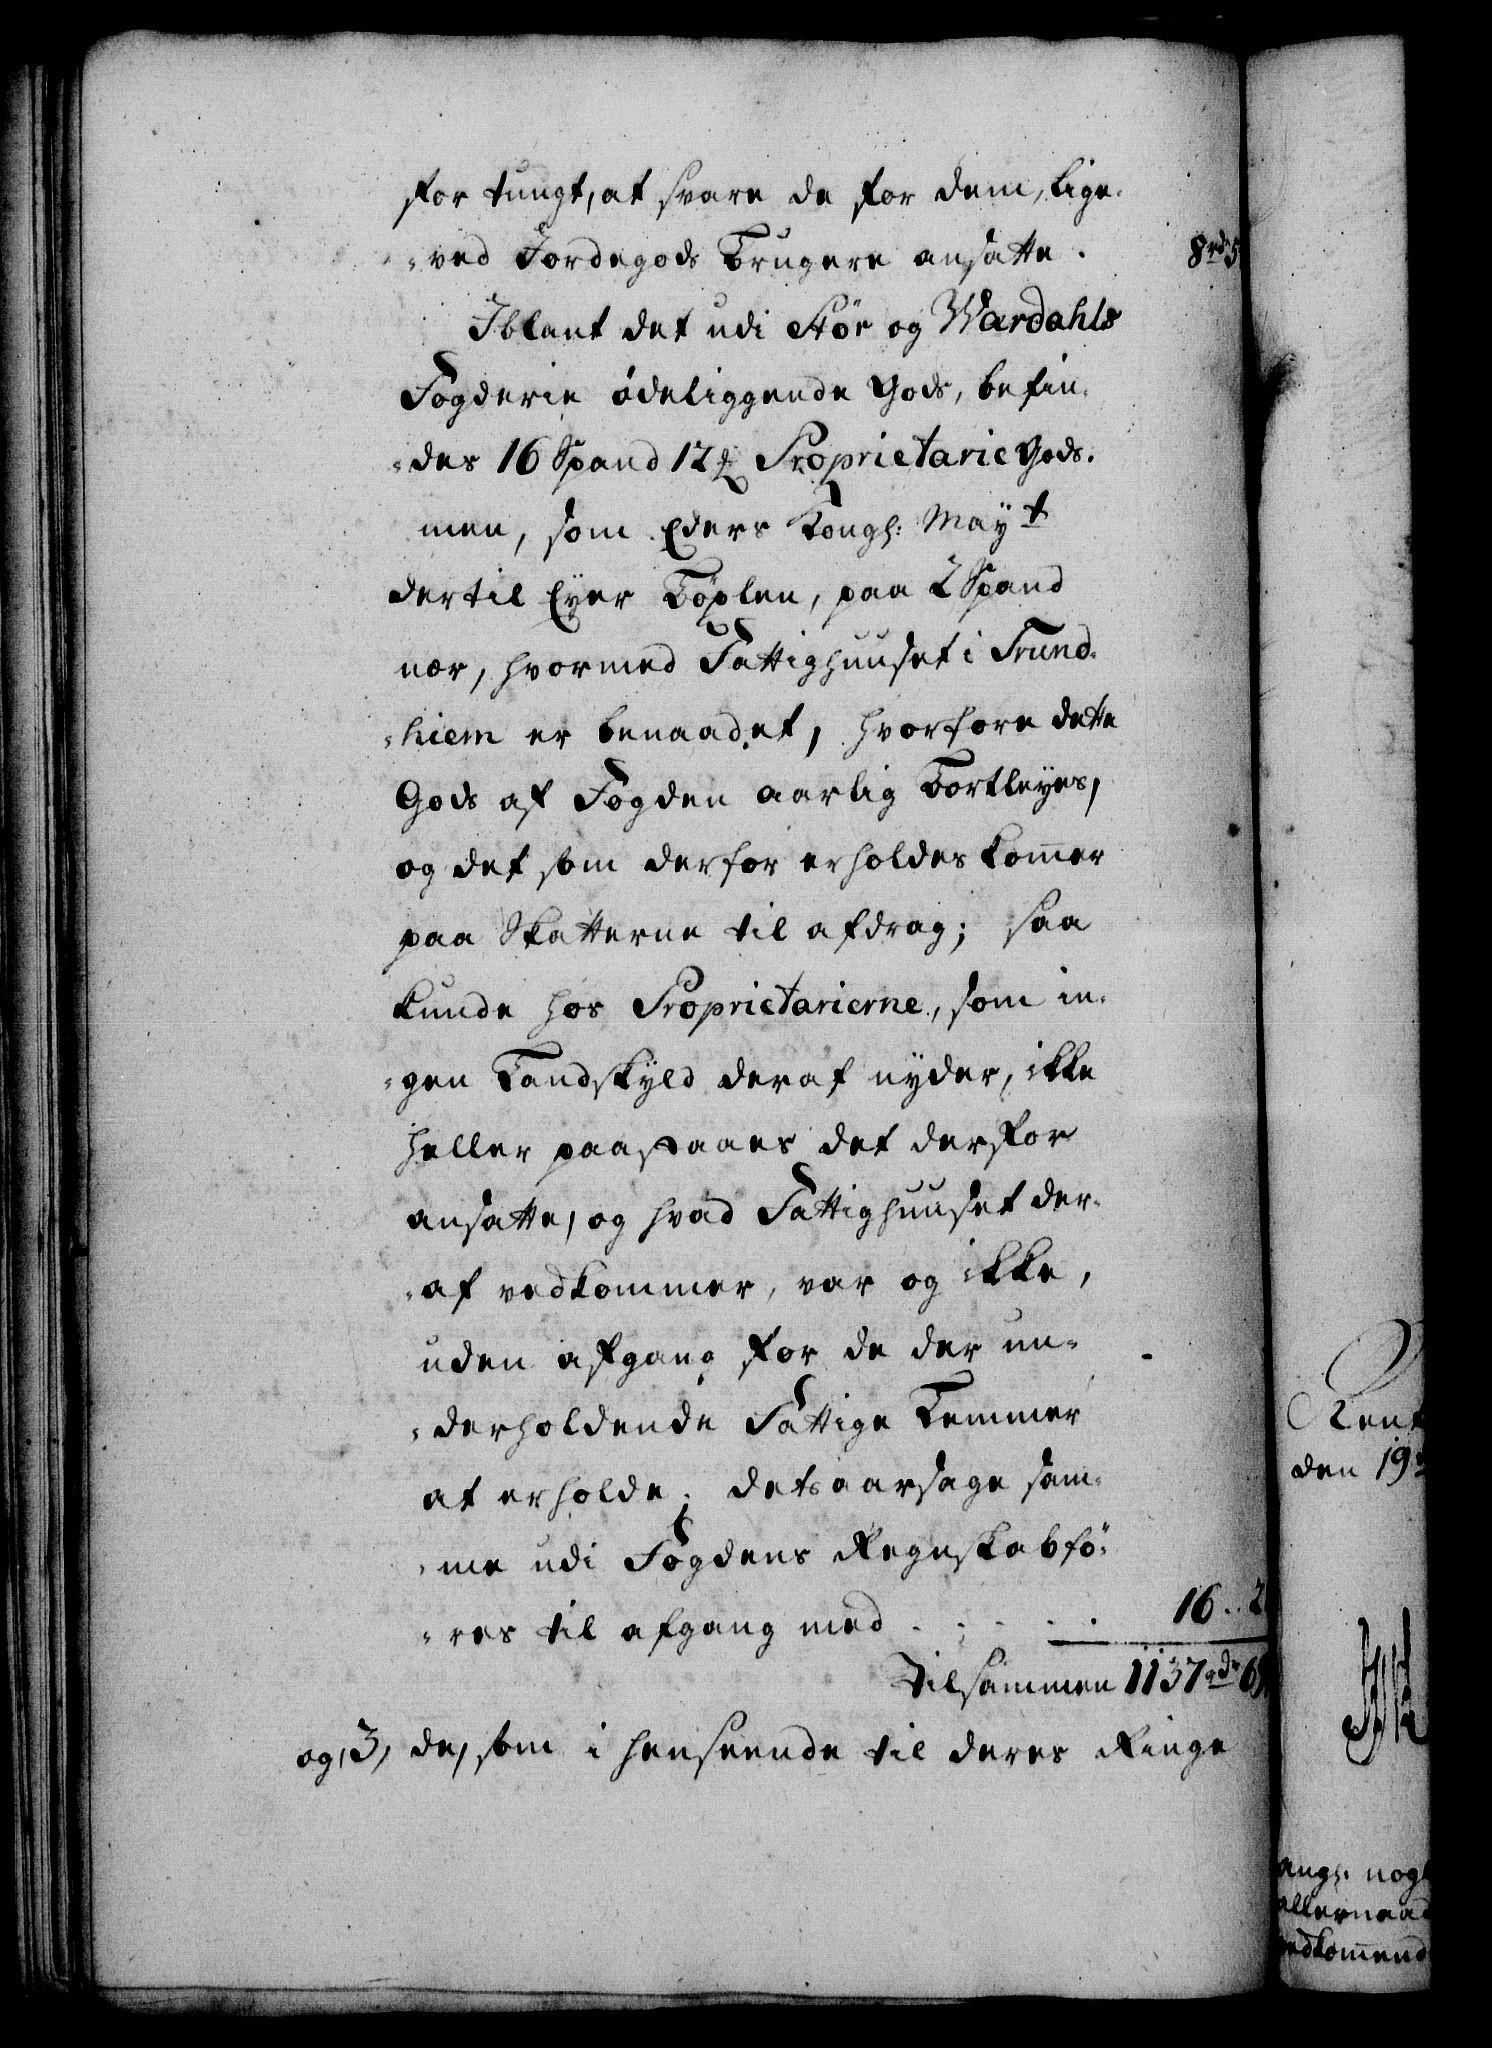 for tungt, at svare de for dem, lige-
-ved Jordegods Brugere ansatte. 8 rdr 5
Iblant det udi Stör og Wardahls
Fogderie ödeliggende Gods, befin-
-des 16 Spand 12 Proprietarie Gods.
men, som Eders Kongl: Mayt
dertil Eyer Böxlen, paa 2 Spand
nær, hvormed Fattighuuset i Trund-
-hiem er benaadet, hvorfore dette
Gods af Fogden aarlig Bortleyes,
og det som derfor erholdes komer
paa Skatterne til afdrag; saa
kunde hos Proprietarierne, som in-
-gen Landskyld deraf nyder, ikke
heller paastaaes det derfor
ansatte, og hvad Fattighuuset der-
-af vedkommer, var og ikke,
uden afgang for de der un-
-derholdende Fattige Lemmer
at erholde; detsaarsage sam-
-me udi Fogdens Regnskab fö-
-res til afgang med . . . . . 16 .. 2
Tilsammen 1137 rdr 6
og, 3, de, som i henseende til deres Ringe
Rent
den 19
nogl
allernaad
vedkomend